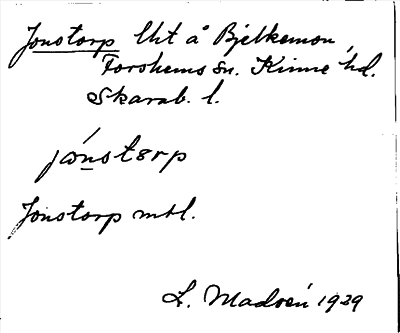 Jonstorp lht å Bjelkemon,
Forshems sn. Kinne hd.
Skarab. l.
jónstərp
Jonstorp mbl.
L. Madsén 1939